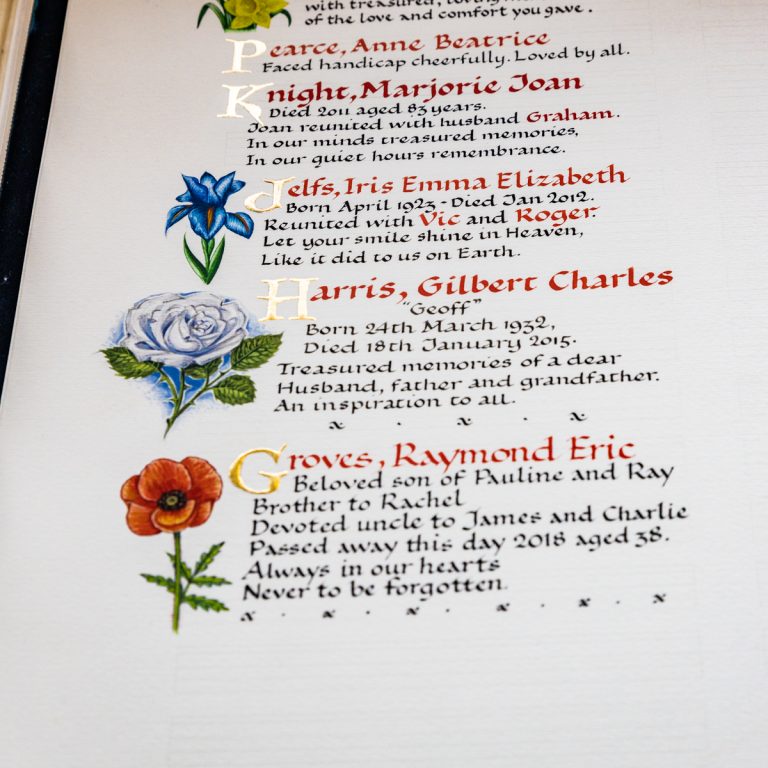 with treasured, loving
of the love and comfort you gave.
Pearce, Anne Beatrice
Faced handicap cheerfully. Loved by all.
Knight, Marjorie Joan
Died 2011 aged 83 years.
Joan reunited with husband Graham.
In our minds treasured memories,
In our quiet hours remembrance.
Jelfs, Iris Emma Elizabeth
Born April 1923 - Died Jan 2012.
Reunited with Vic and Roger.
Let your smile shine in Heaven,
Like it did to us on Earth.
Harris, Gilbert Charles
"Geoff"
Born 24th March 1932,
Died 18th January 2015.
Treasured memories of a dear
Husband, father and grandfather.
An inspiration to all.
x . x . x
Groves, Raymond Eric
Beloved son of Pauline and Ray
Brother to Rachel
Devoted uncle to James and Charlie
Passed away this day 2018 aged 38.
Always in our hearts
Never to be forgotten.
x . x . x . x . x . x